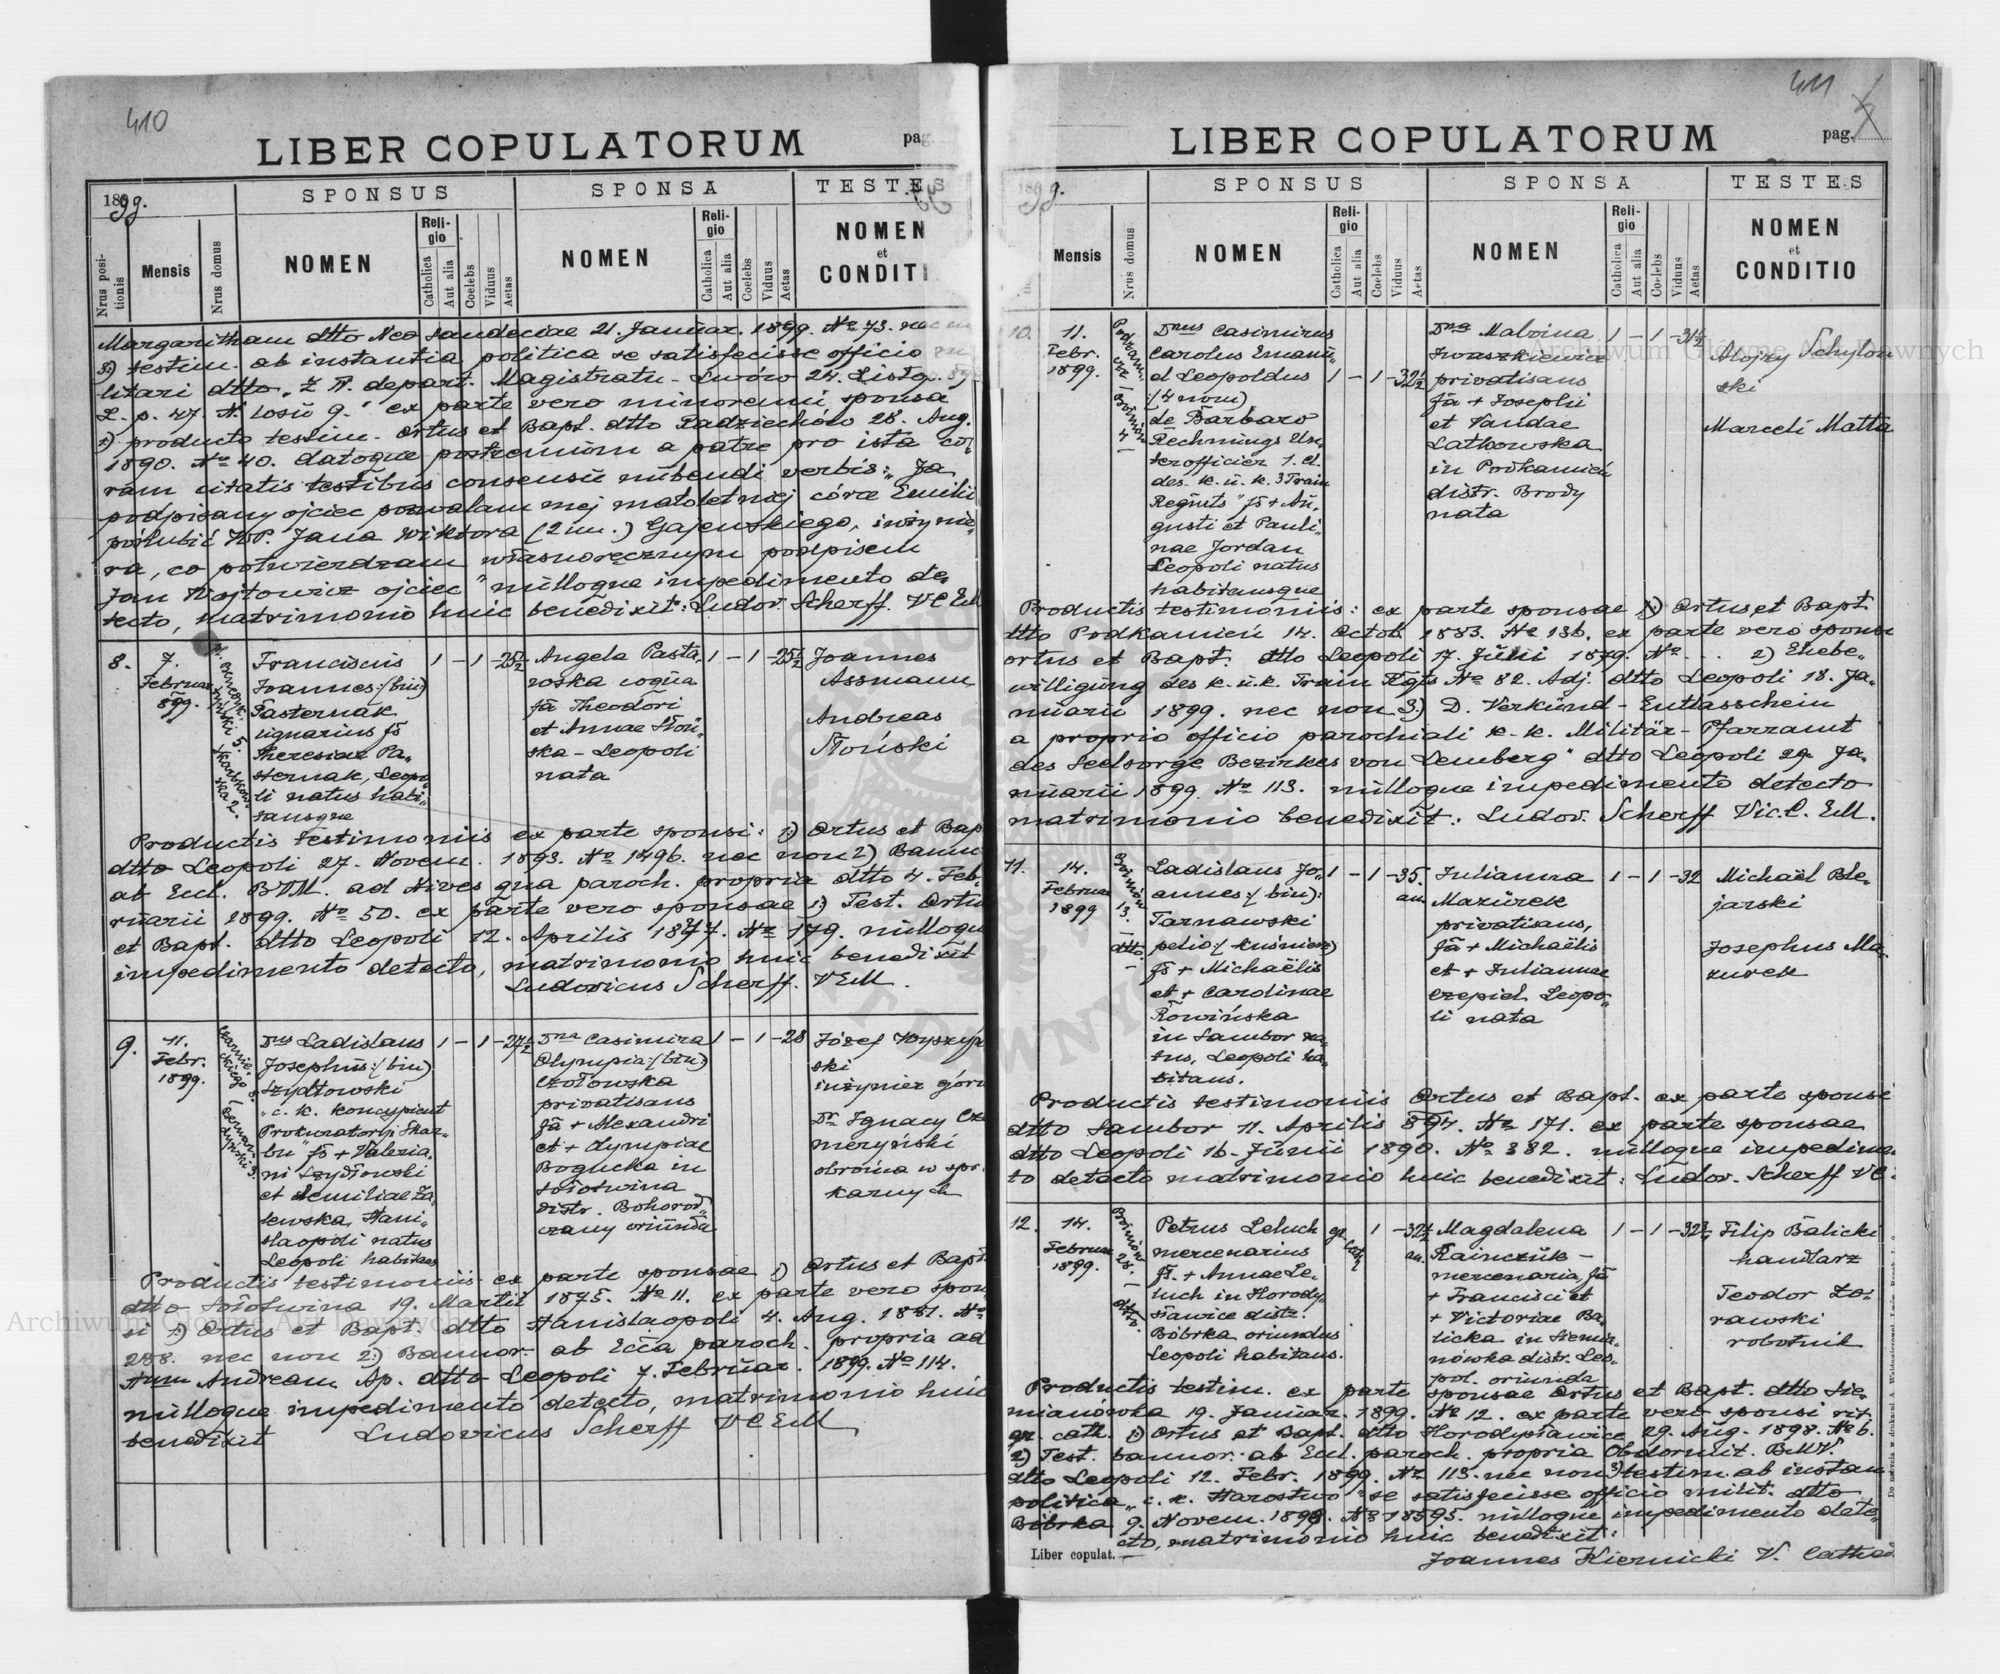 410
LIBER COPULATORUM
pag.
1899.
SPONSUS
SPONSA
TESTES
Nrus positionis
Mensis
Nrus domus
NOMEN
Religio
Catholica
Aut alia
Coelebs
Viduus
Aetas
NOMEN
Religio
Catholica
Aut alia
Coelebs
Viduus
Aetas
NOMEN
et
CONDITI
Margaritham dtto Neo Sandeciae 21. Januar. 1899. No 73. nec
3) testim. ab instantia politica se satisfecisse officio
litari dtto „Z IV. depart. Magistratu - Lwów 24. Listop.
L. p. 47. ex parte vero minorenni sponsa
1) producto testim. Ortus et Bapt. dtto Radziechów 28. Aug.
1890. No 40. datoque postremum a patre pro ista co-
ram citatis testibus consensu nubendi verbis: „Ja
podpisany ojciec pozwalam mej małoletniej córce Emilii
poślubić WP. Jana Wiktora (2 im.) Gajewskiego, inżynie-
ra, co potwierdzam własnoręcznym podpisem
Jan Wojtowicz ojciec" nulloque impedimento de-
tecto, matrimonio huic benedixit: Ludov. Scherff. VCEM
8.
7.
Februar
899.
5.
2.
Franciscus
Joannes (bin)
Pasternak
lignarius fs
Theresiae Pa-
sternak, Leopo-
li natus habi-
tansque
1 - 1 - 25 1/2
Angela Pasta
roska cogna
fa Theodori
et Annae Słoń-
ska - Leopoli
nata
1 - 1 - 25 1/2
Joannes
Assmann
Andreas
Słoński
Productis testimoniis ex parte sponsi: 1) Ortus et Bap
dtto Leopoli 27. Novem. 1893. No 1496. nec non 2) Bann
ab Eccl. BVM. ad Nives qua paroch. propria dtto 4. Feb-
ruarii 1899. No 50. ex parte vero sponsae 1) Test. Ortu
et Bapt. dtto Leopoli 12. Aprilis 1877. No 179. nulloqu
impedimento detecto, matrimonio huic benedixit
Ludovicus Scherff. VCEM.
9.
11.
Febr.
1899.
Czarnie-
ckiego 8.
Dnus Ladislaus
Josephus (bin)
Szydłowski
„c. k. koncypient
Prokuratoryi Skar-
bu" fs + Valeria-
ni Szydłowski
et Aemiliae Za-
lewska, Stani-
slaopoli natus
Leopoli habitans
1 - 1 - 27 1/2
Dna Casimira
Olympia (bin)
Czołowska
privatisans
fa + Alexandri
et + Olympiae
Bogucka in
Sołotwina
distr. Bohorod-
czany oriunda
1 - 1 - 28
Józef Wyszyń
ski
inżynier górn
Dr Ignacy Cze
meryński
obrońca w spr.
karnych
Productis testimoniis ex parte sponsae 1) Ortus et Bapt
dtto Sołotwina 19. Martii 1875. No 11. ex parte vero spon
si 1) Ortus et Bapt. dtto Stanislaopoli 4. Aug. 1881. No
288. nec non 2) Bannor. ab Ecca paroch. propria ad
Stum Andream Ap. dtto Leopoli 7. Februar. 1899. No 114.
nulloque impedimento detecto, matrimonio huic
benedixit Ludovicus Scherff VCEM
411
LIBER COPULATORUM
pag.
1899.
SPONSUS
SPONSA
TESTES
Mensis
Nrus domus
NOMEN
Religio
Catholica
Aut alia
Coelebs
Viduus
Aetas
NOMEN
Religio
Catholica
Aut alia
Coelebs
Viduus
Aetas
NOMEN
et
CONDITIO
10.
11.
Febr.
1899.
Dnus Casimirus
Carolus Emanu-
el Leopoldus
(4 nom)
de Barbaro
Rechnungs Un-
terofficier 1. Cl.
des k. u. k. 3 Train
Regmts" fs + Au-
gusti et Pauli-
nae Jordan
Leopoli natus
habitansque
1 - 1 - 32 1/2
Dna Malvina
Iwaszkiewicz
privatisans
fa + Josephi
et Vandae
Latkowska
in Podkamień
distr. Brody
nata
1 - 1 - 31 1/2
Alojzy Schylon
ski
Marceli Matta
Productis testimoniis: ex parte sponsae 1) Ortus et Bapt
dtto Podkamień 14. Octob. 1883. No 136. ex parte vero sponsi
ortus et Bapt. dtto Leopoli 17. Junii 1879. No ... 2) Ehebe-
willigung des k. u. k. Train Rgts No 82. Adj. dtto Leopoli 18. Ja-
nuarii 1899. nec non 3) D. Verkünd - Entlasschein
a proprio officio parochiali k. k. Militär - Pfarramt
des Seelsorge Bezirkes von Lemberg" dtto Leopoli 29. Ja-
nuarii 1899. No 113. nulloque impedimento detecto
matrimonio benedixit: Ludov. Scherff Vic. C. EM.
11.
14.
Februar
1899
13.
dtto.
Ladislaus Jo-
annes (bin):
Tarnawski
pelio (kuśnierz)
fs + Michaëlis
et + Carolinae
Rowińska
in Sambor na-
tus, Leopoli ha-
bitans.
1 - 1 - 35.
an.
Julianna
Mazurek
privatisans,
fa + Michaëlis
et + Juliannae
Czepiel Leopo-
li nata
1 - 1 - 32
Michaël Ble-
jarski
Josephus Ma-
zurek
Productis testimoniis Ortus et Bapt. ex parte sponsi
dtto Sambor 11. Aprilis 894. No 171. ex parte sponsae
dtto Leopoli 16. Junii 1890. No 382. nulloque impedimen
to detecto matrimonio huic benedixit: Ludov. Scherff VC.
12.
14.
Februar
1899.
28.
dtto.
Petrus Leluch
mercenarius
fs. + Annae Le-
luch in Horody-
sławice distr.
Bóbrka oriundus
Leopoli habitans.
gr. cath.
1 - 32 1/2
an.
Magdalena
Rainczuk -
mercenaria, fa
+ Francisci et
+ Victoriae Ba-
licka in Siemia-
nówka distr. Leo-
pol. oriunda
1 - 1 - 32 1/2
Filip Balicki
handlarz
Teodor Zo-
rawski
robotnik
Productis testim. ex parte sponsae Ortus et Bapt. dtto Sie-
mianówka 19. Januar. 1899. No 12. ex parte vero sponsi rit.
gr. cath. 1) Ortus et Bapt. dtto Horodysławice 29. Aug. 1898. No 6.
2) Test. bannor. ab Eccl. paroch. propria Obdormit. B.M.V.
dtto Leopoli 12. Febr. 1899. No 113. nec non 3) testim. ab instan
politica „c. k. Starostwo" se satisfecisse officio milit. dtto
Bóbrka 9. Novem. 1898. No 18595. nulloque impedimento dete-
cto, matrimonio huic benedixit:
Joannes Kiernicki V. Cathed
Liber copulat.
Archiwum Główne Akt Dawnych
Archiwum Główne Akt Dawnych